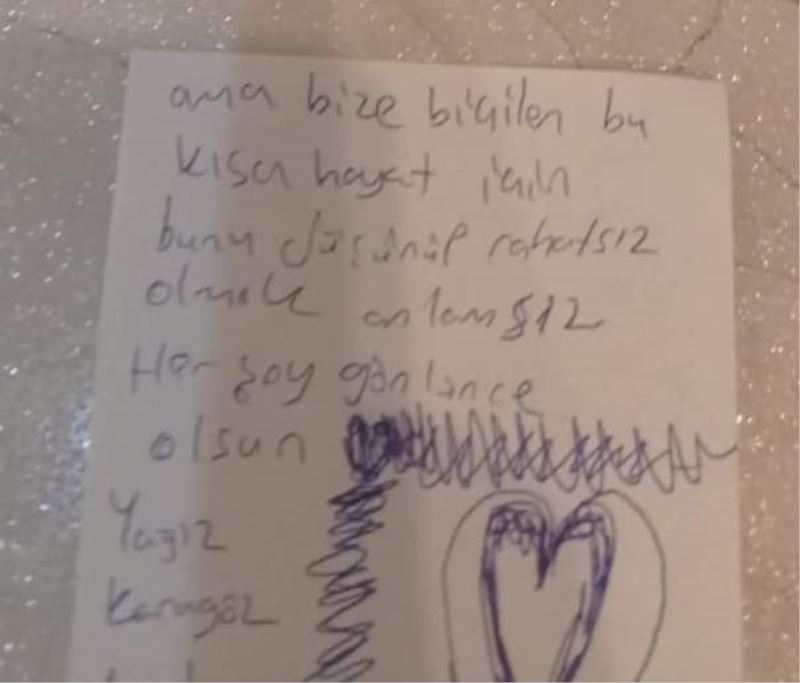 ama bize biçilen bu
kısa hayat için
bunu düşünüp rahatsız
olmak anlamsız
Her şey gönlünce
olsun
Yağız
Karagöz